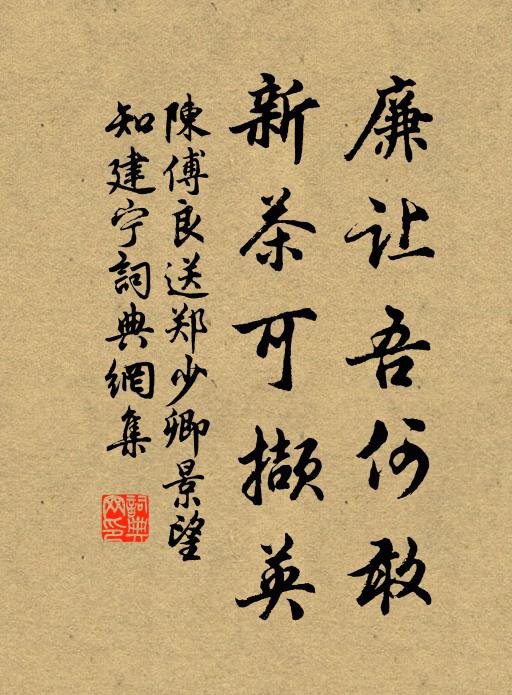 廉让吾何敢
新茶可撷英
陳傅良送郑少卿景望
知建宁詞典網集
詞典
网印